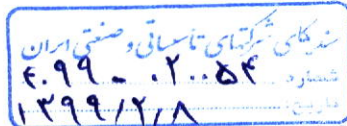 سندیکای شرکتهای تأسیساتی و صنعتی ایران
شماره ۴۰۹۹ - ۰۲۰۰۵۴
تاریخ: ۱۳۹۹/۲/۸